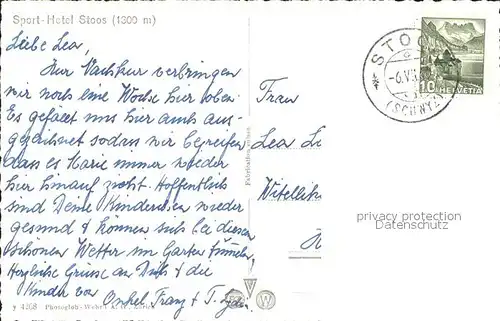 Sport-Hotel Stoos (1300 m)
Liebe Lea,
Zur Nachkur verbringen
wir noch eine Woche hier oben.
Es gefällt uns hier auch aus-
gezeichnet sodass wir begreifen
dass es Marie immer wieder
hier hinauf zieht. Hoffentlich
sind Deine Kinderchen wieder
gesund & können sich bei diesem
schönen Wetter im Garten tummeln.
Herzliche Grüsse an Dich & die
Kinder von Onkel Franz & T.
Frau
Lea
STOOS
-6.V
(SCHWYZ)
10 HELVETIA
privacy protection
Datenschutz
y 4268 Photoglob-